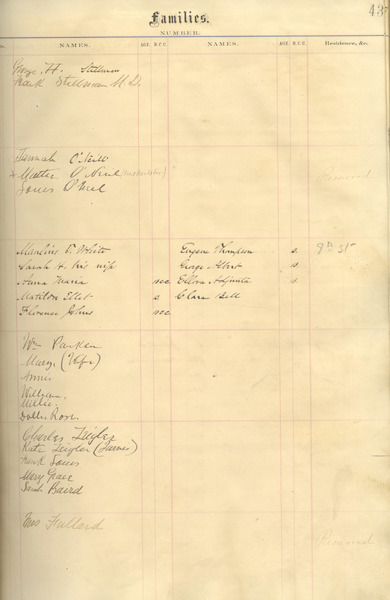 437
Families.
NUMBER.
NAMES. AGE. B.C.C. NAMES. AGE. B.C.C. Residence, &c.
George H. Stillman
Frank Stillman M.D.
Hannah O'Neill
x Mattie O'Neil
Louis O'Neil
Removed
Manlius T. White Eugene Thompson s. 9th St
Sarah H. his wife George Albert s.
Anna Maria soc Ellen s
Matilda Eliot s Clara Bell
Florence soc
Wm Parker
Mary, (Wife)
Annie
William
Millie
Dolly Rose
Charles Zeigler
Kate Zeigler
Frank Louis
Mary Grace
Sarah Baird
Mrs Fullard
Removed